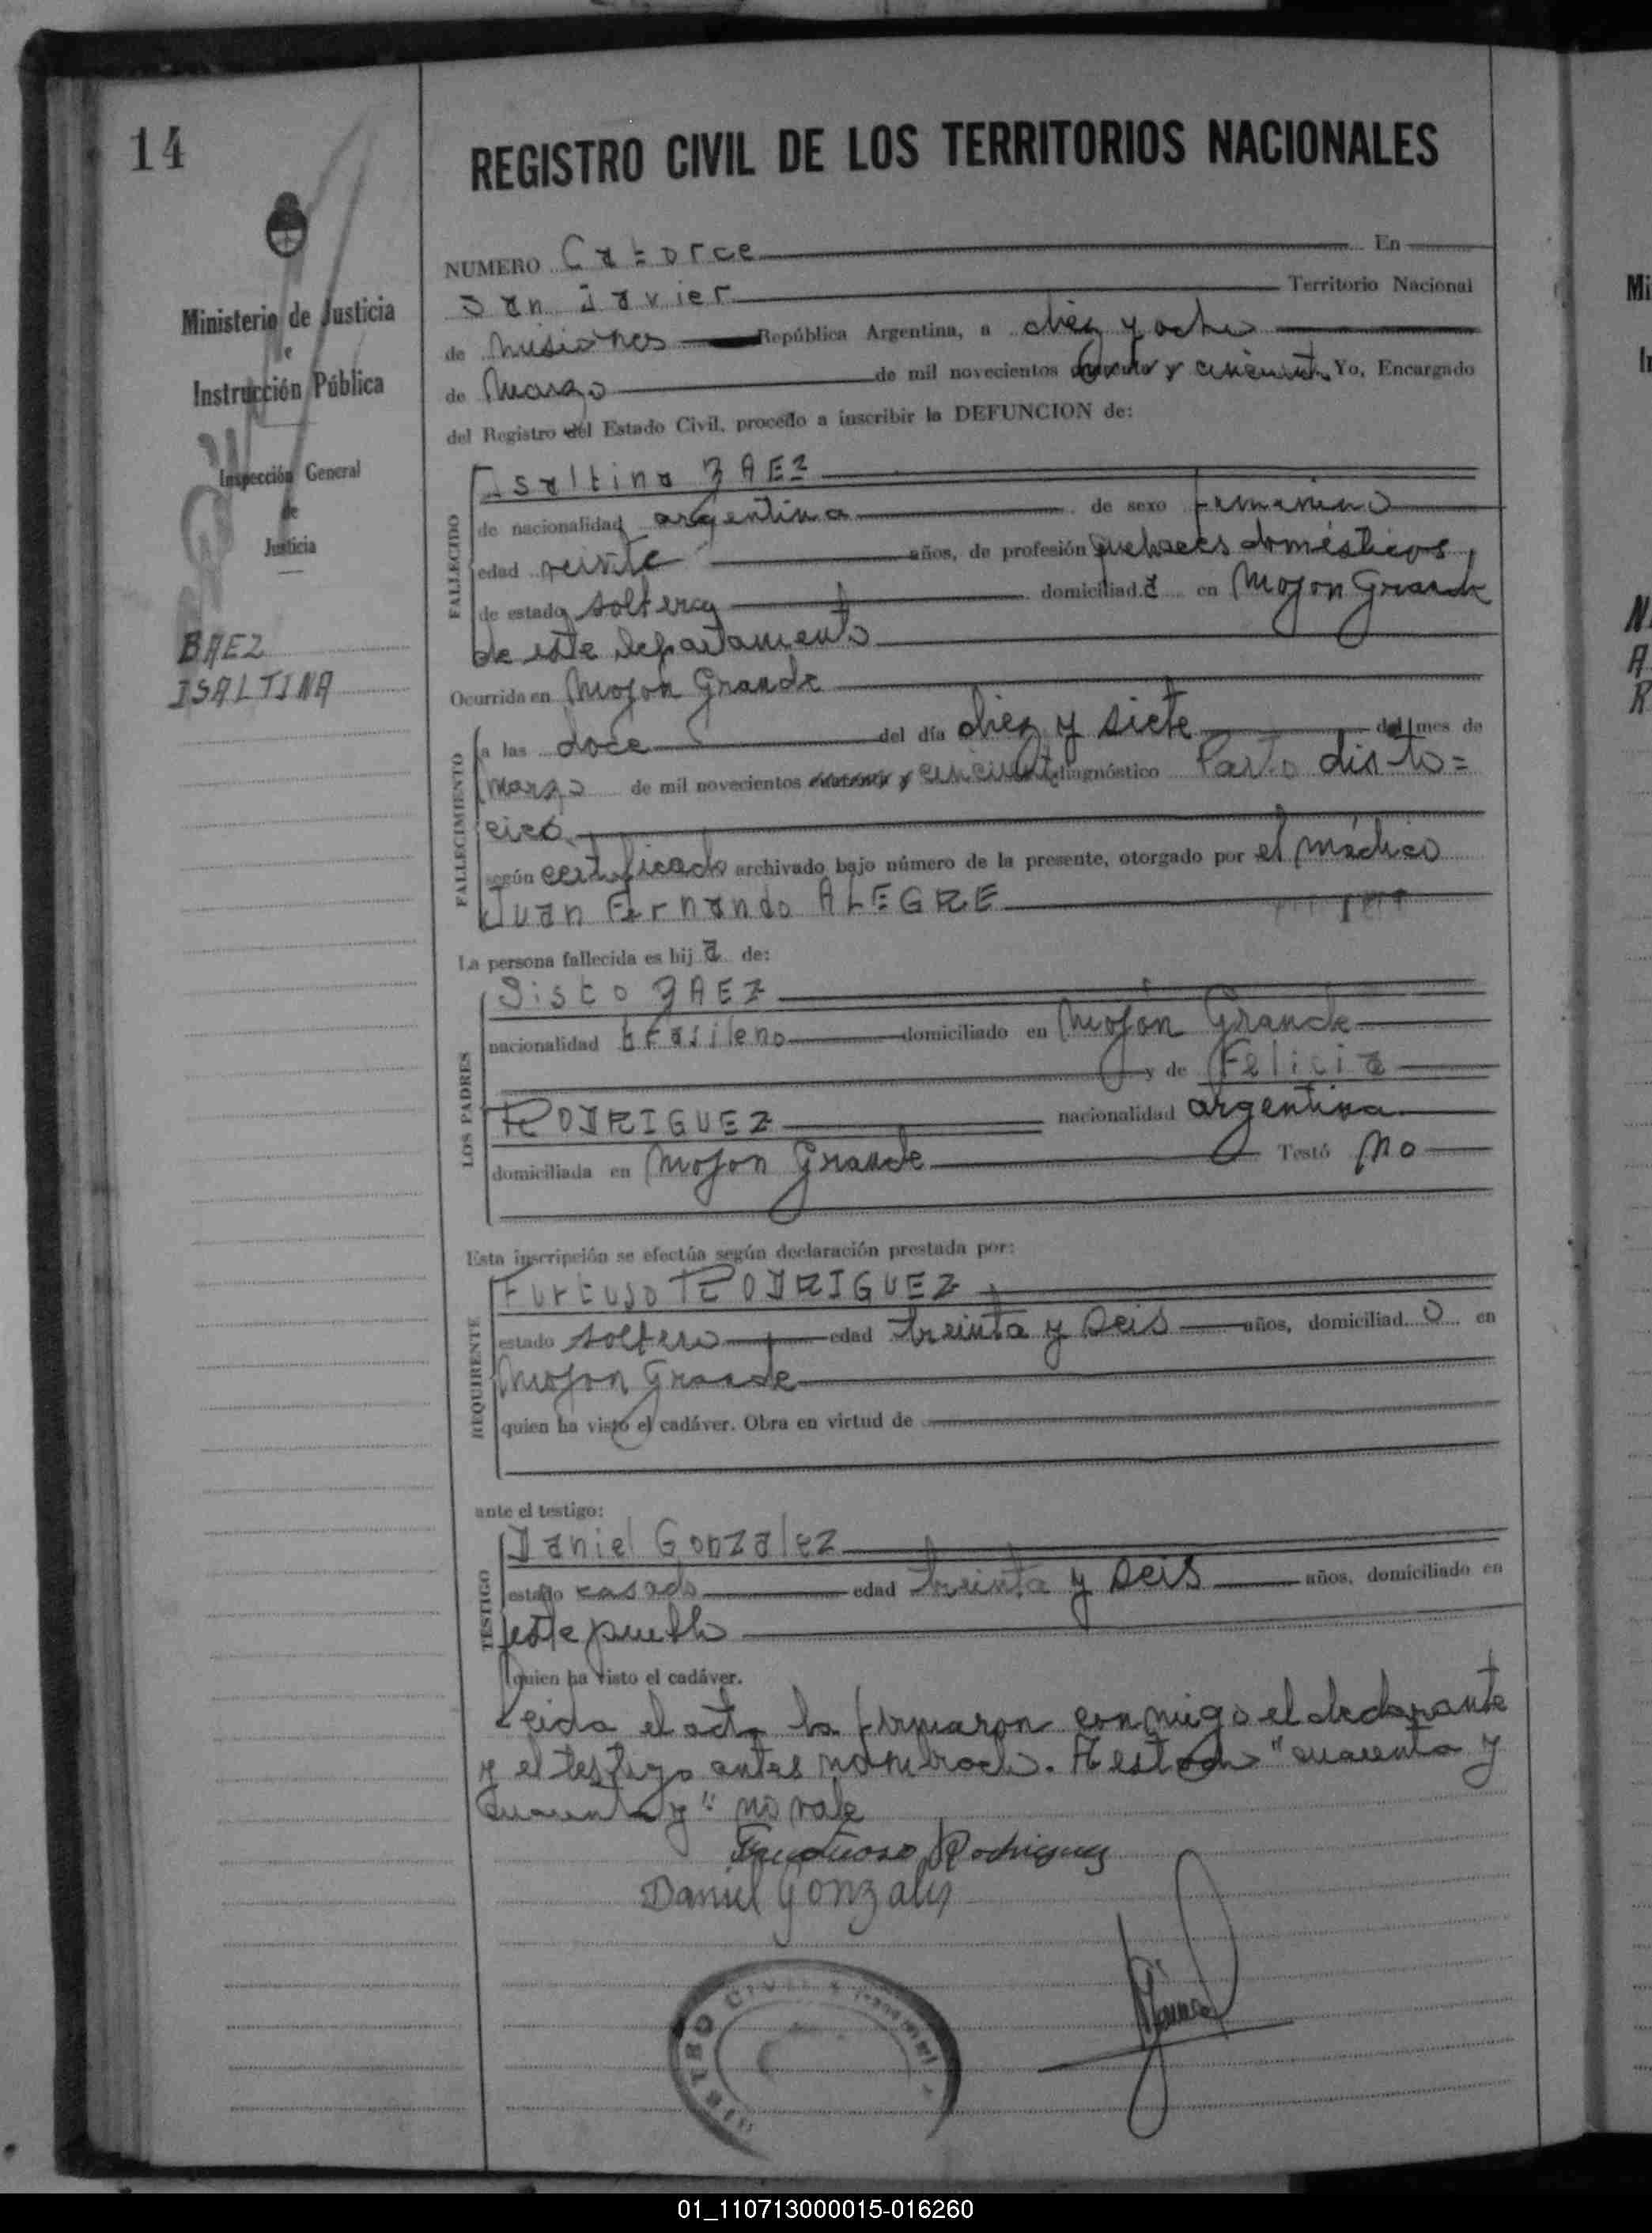 14
REGISTRO CIVIL DE LOS TERRITORIOS NACIONALES
Ministerio de Justicia
e
Instrucción Pública
Inspección General
de
Justicia
BAEZ
ISALTINA
NUMERO Catorce En
San Javier Territorio Nacional
de Misiones República Argentina, a diez y ocho
de Marzo de mil novecientos y cincuenta Yo, Encargado
del Registro del Estado Civil, procedo a inscribir la DEFUNCION de:
FALLECIDO
Isaltina BAEZ
de nacionalidad argentina de sexo femenino
edad veinte años, de profesión quehaceres domésticos,
de estado soltera domiciliad a en Mojon Grande
de este departamento
Ocurrida en Mojon Grande
FALLECIMIENTO
a las doce del día diez y siete del mes de
marzo de mil novecientos cuarenta y cincuenta diagnóstico Parto disto=
cico
según certificado archivado bajo número de la presente, otorgado por el médico
Juan Fernando ALEGRE
La persona fallecida es hij a de:
LOS PADRES
Sisto BAEZ
nacionalidad brasileno domiciliado en Mojón Grande
y de Felicia
RODRIGUEZ nacionalidad argentina
domiciliada en Mojon Grande Testó no
Esta inscripción se efectúa según declaración prestada por:
REQUIRENTE
Furtuso RODRIGUEZ
estado soltero edad treinta y seis años, domiciliad o en
Mojon Grande
quien ha visto el cadáver. Obra en virtud de
ante el testigo:
TESTIGO
Daniel Gonzalez
estado casado edad treinta y seis años, domiciliado en
este pueblo
quien ha visto el cadáver.
Leida el acta la firmaron conmigo el declarante
y el testigo antes nombrado. Testado "cuarenta y
cuarenta y" no vale
Fructuoso Rodriguez
Daniel Gonzalez
REGISTRO CIVIL
01_110713000015-016260